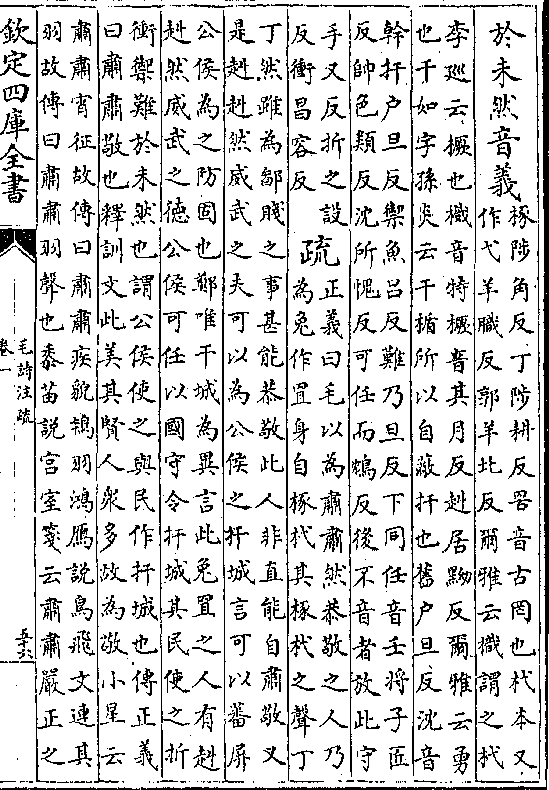 於未然音義
椓陟角反丁陟耕反罟音古罔也杙本又
作弋羊職反郭羊北反爾雅云樴謂之杙
李廵云橛也樴音特橛瞢其月反赳居黝反爾雅云勇
也干如字孫炎云干楯所以自蔽扞也舊户旦反沈音
幹扞户旦反禦魚吕反難乃旦反下同任音壬將子匠
反帥色類反沈所愧反可任而鴆反後不音者放此守
手又反折之設
反衝昌容反
疏
正義曰毛以為肅肅然恭敬之人乃
為兔作罝身自椓杙其椓杙之聲丁
丁然雖為鄙賤之事甚能恭敬此人非直能自肅敬又
是赳赳然威武之夫可以為公侯之扞城言可以蕃屏
公侯為之防固也鄭唯干城為異言此兔罝之人有赳
赳然威武之德公侯可任以國守令扞城其民使之折
衝禦難於未然也謂公侯使之與民作扞城也傳正義
曰肅肅敬也釋訓文此美其賢人衆多故為敬小星云
肅肅宵征故傳曰肅肅疾貌鴇羽鴻鴈說鳥飛文連其
羽故傳曰肅肅羽聲也黍苗説宫室箋云肅肅嚴正之
欽定四庫全書
毛詩注疏
卷一
五六